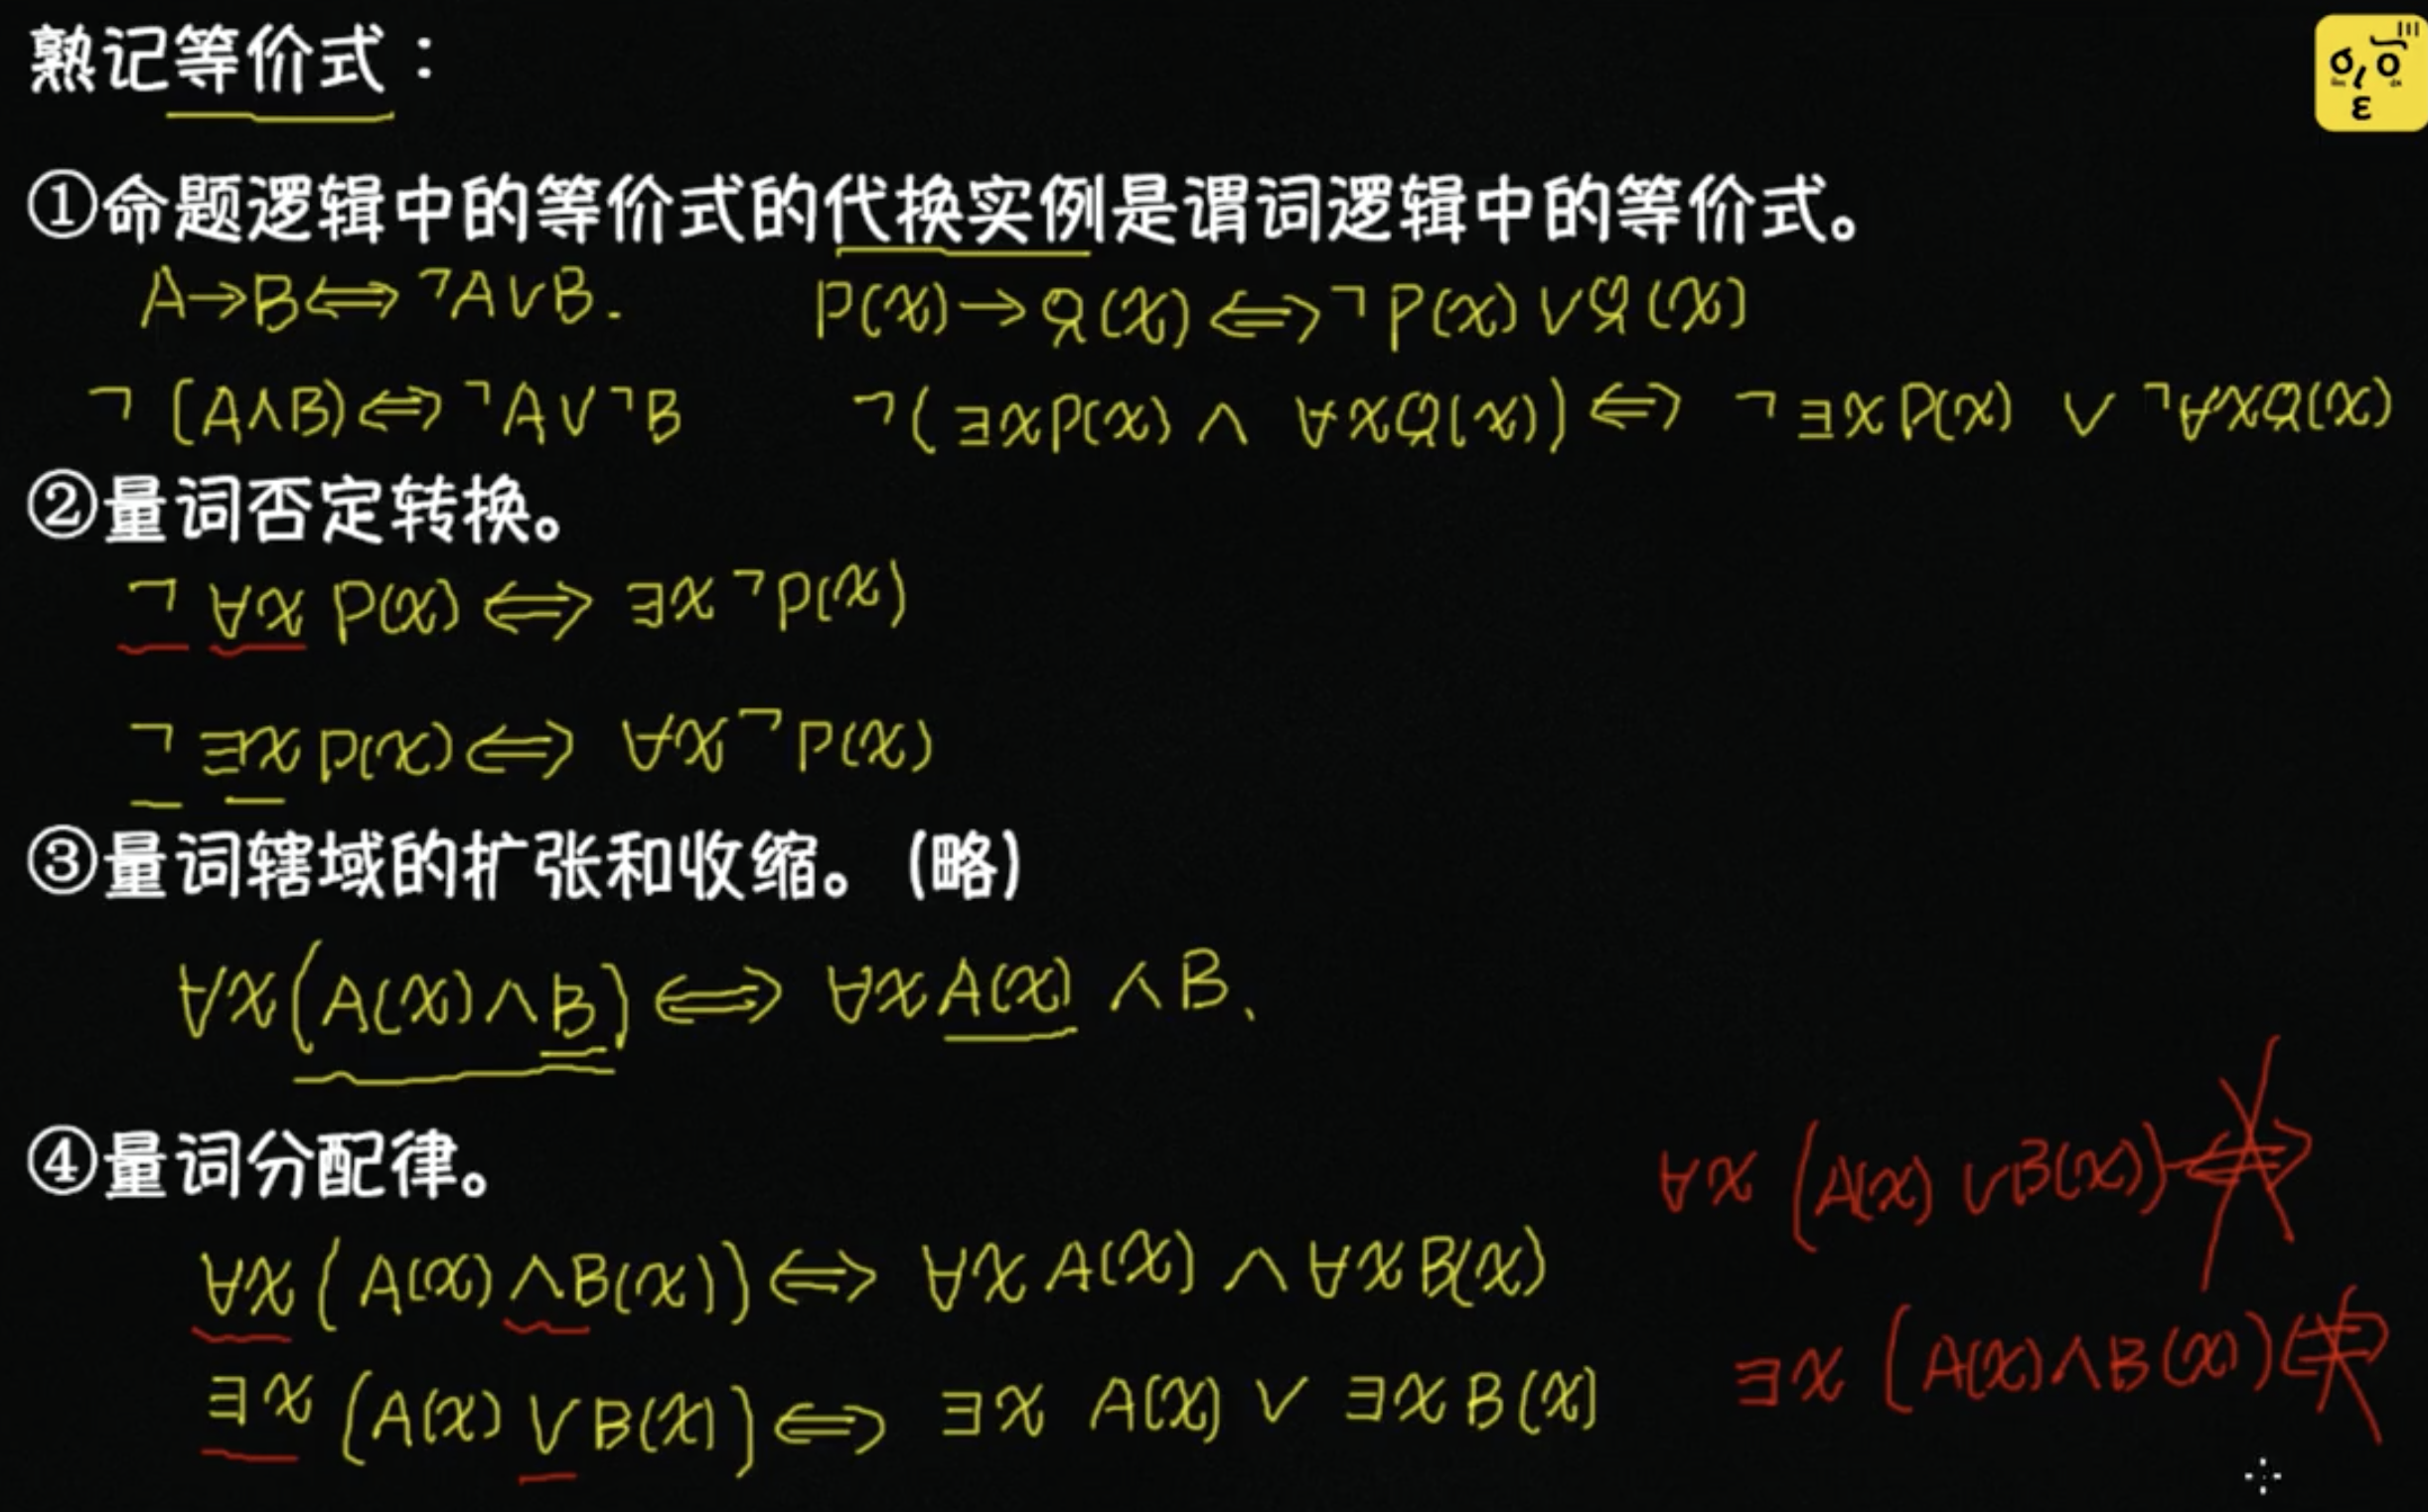 熟记等价式：
①命题逻辑中的等价式的代换实例是谓词逻辑中的等价式。
A→B⇔¬A∨B. P(x)→Q(x)⇔¬P(x)∨Q(x)
¬(A∧B)⇔¬A∨¬B ¬(∃xP(x)∧∀xQ(x))⇔¬∃xP(x)∨¬∀xQ(x)
②量词否定转换。
¬∀xP(x)⇔∃x¬P(x)
¬∃xP(x)⇔∀x¬P(x)
③量词辖域的扩张和收缩。(略)
∀x(A(x)∧B)⇔∀xA(x)∧B、
④量词分配律。
∀x(A(x)∨B(x))⇔
∀x(A(x)∧B(x))⇔∀xA(x)∧∀xB(x)
∃x(A(x)∧B(x))⇔
∃x(A(x)∨B(x))⇔∃xA(x)∨∃xB(x)